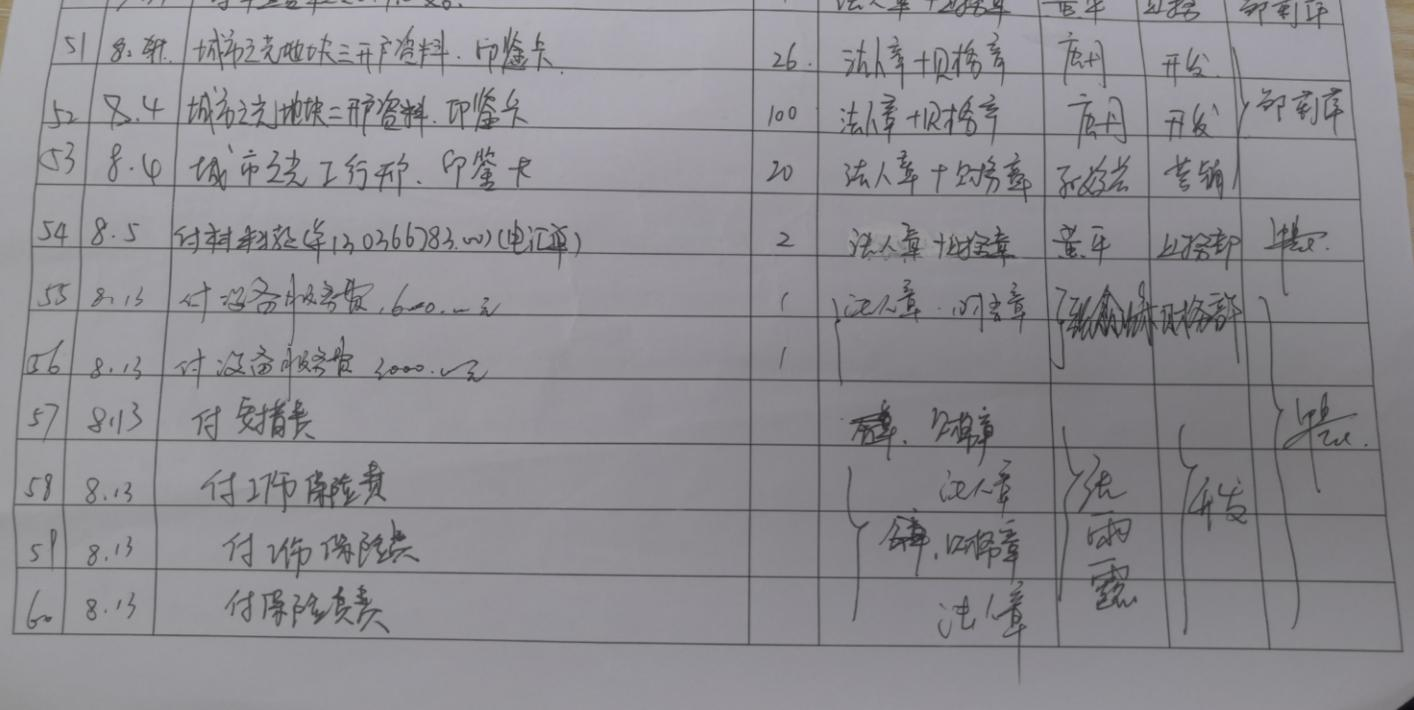 法人章+财务章 黄平 财务 邹莉萍
51 8.4 城市之光地块三开户资料.印鉴卡 26. 法人章+财务章 唐丹 开发
52 8.4 城市之光地块二开户资料.印鉴卡 100 法人章+财务章 唐丹 开发 邹莉萍
53 8.4 城市之光工行开户、印鉴卡 20 法人章+财务章 营销
54 8.5 付材料款(年130366783.00)(电汇单) 2 法人章+财务章 黄平 财务部
55 8.13 付设备服务费.6000.00元 1 法人章. 财务部
56 8.13 付设备服务费 3000.00元 1
57 8.13 付 公章、财务章
58 8.13 付工伤保险费 法人章 张 开发
59 8.13 付工伤保险费 公章、财务章 雨
60 8.13 付保险费 法人章 露